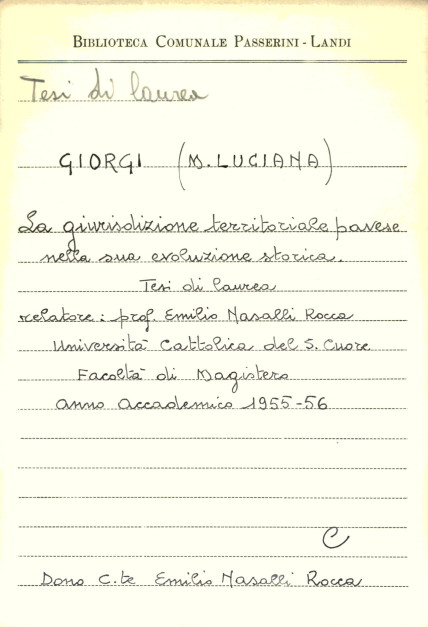 BIBLIOTECA COMUNALE PASSERINI - LANDI
Tesi di laurea
GIORGI (M. LUCIANA)
La giurisdizione territoriale pavese
nella sua evoluzione storica.
Tesi di laurea
relatore: prof. Emilio Nasalli Rocca
Università Cattolica del S. Cuore
Facoltà di Magistero
anno accademico 1955-56
C
Dono C.te Emilio Nasalli Rocca